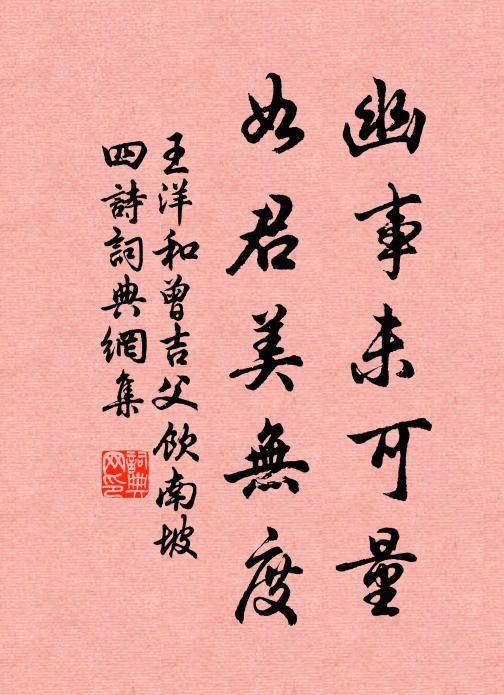 幽事未可量
如君美無度
王洋和曾吉父飲南坡
四詩詞典網集
詞典
网印